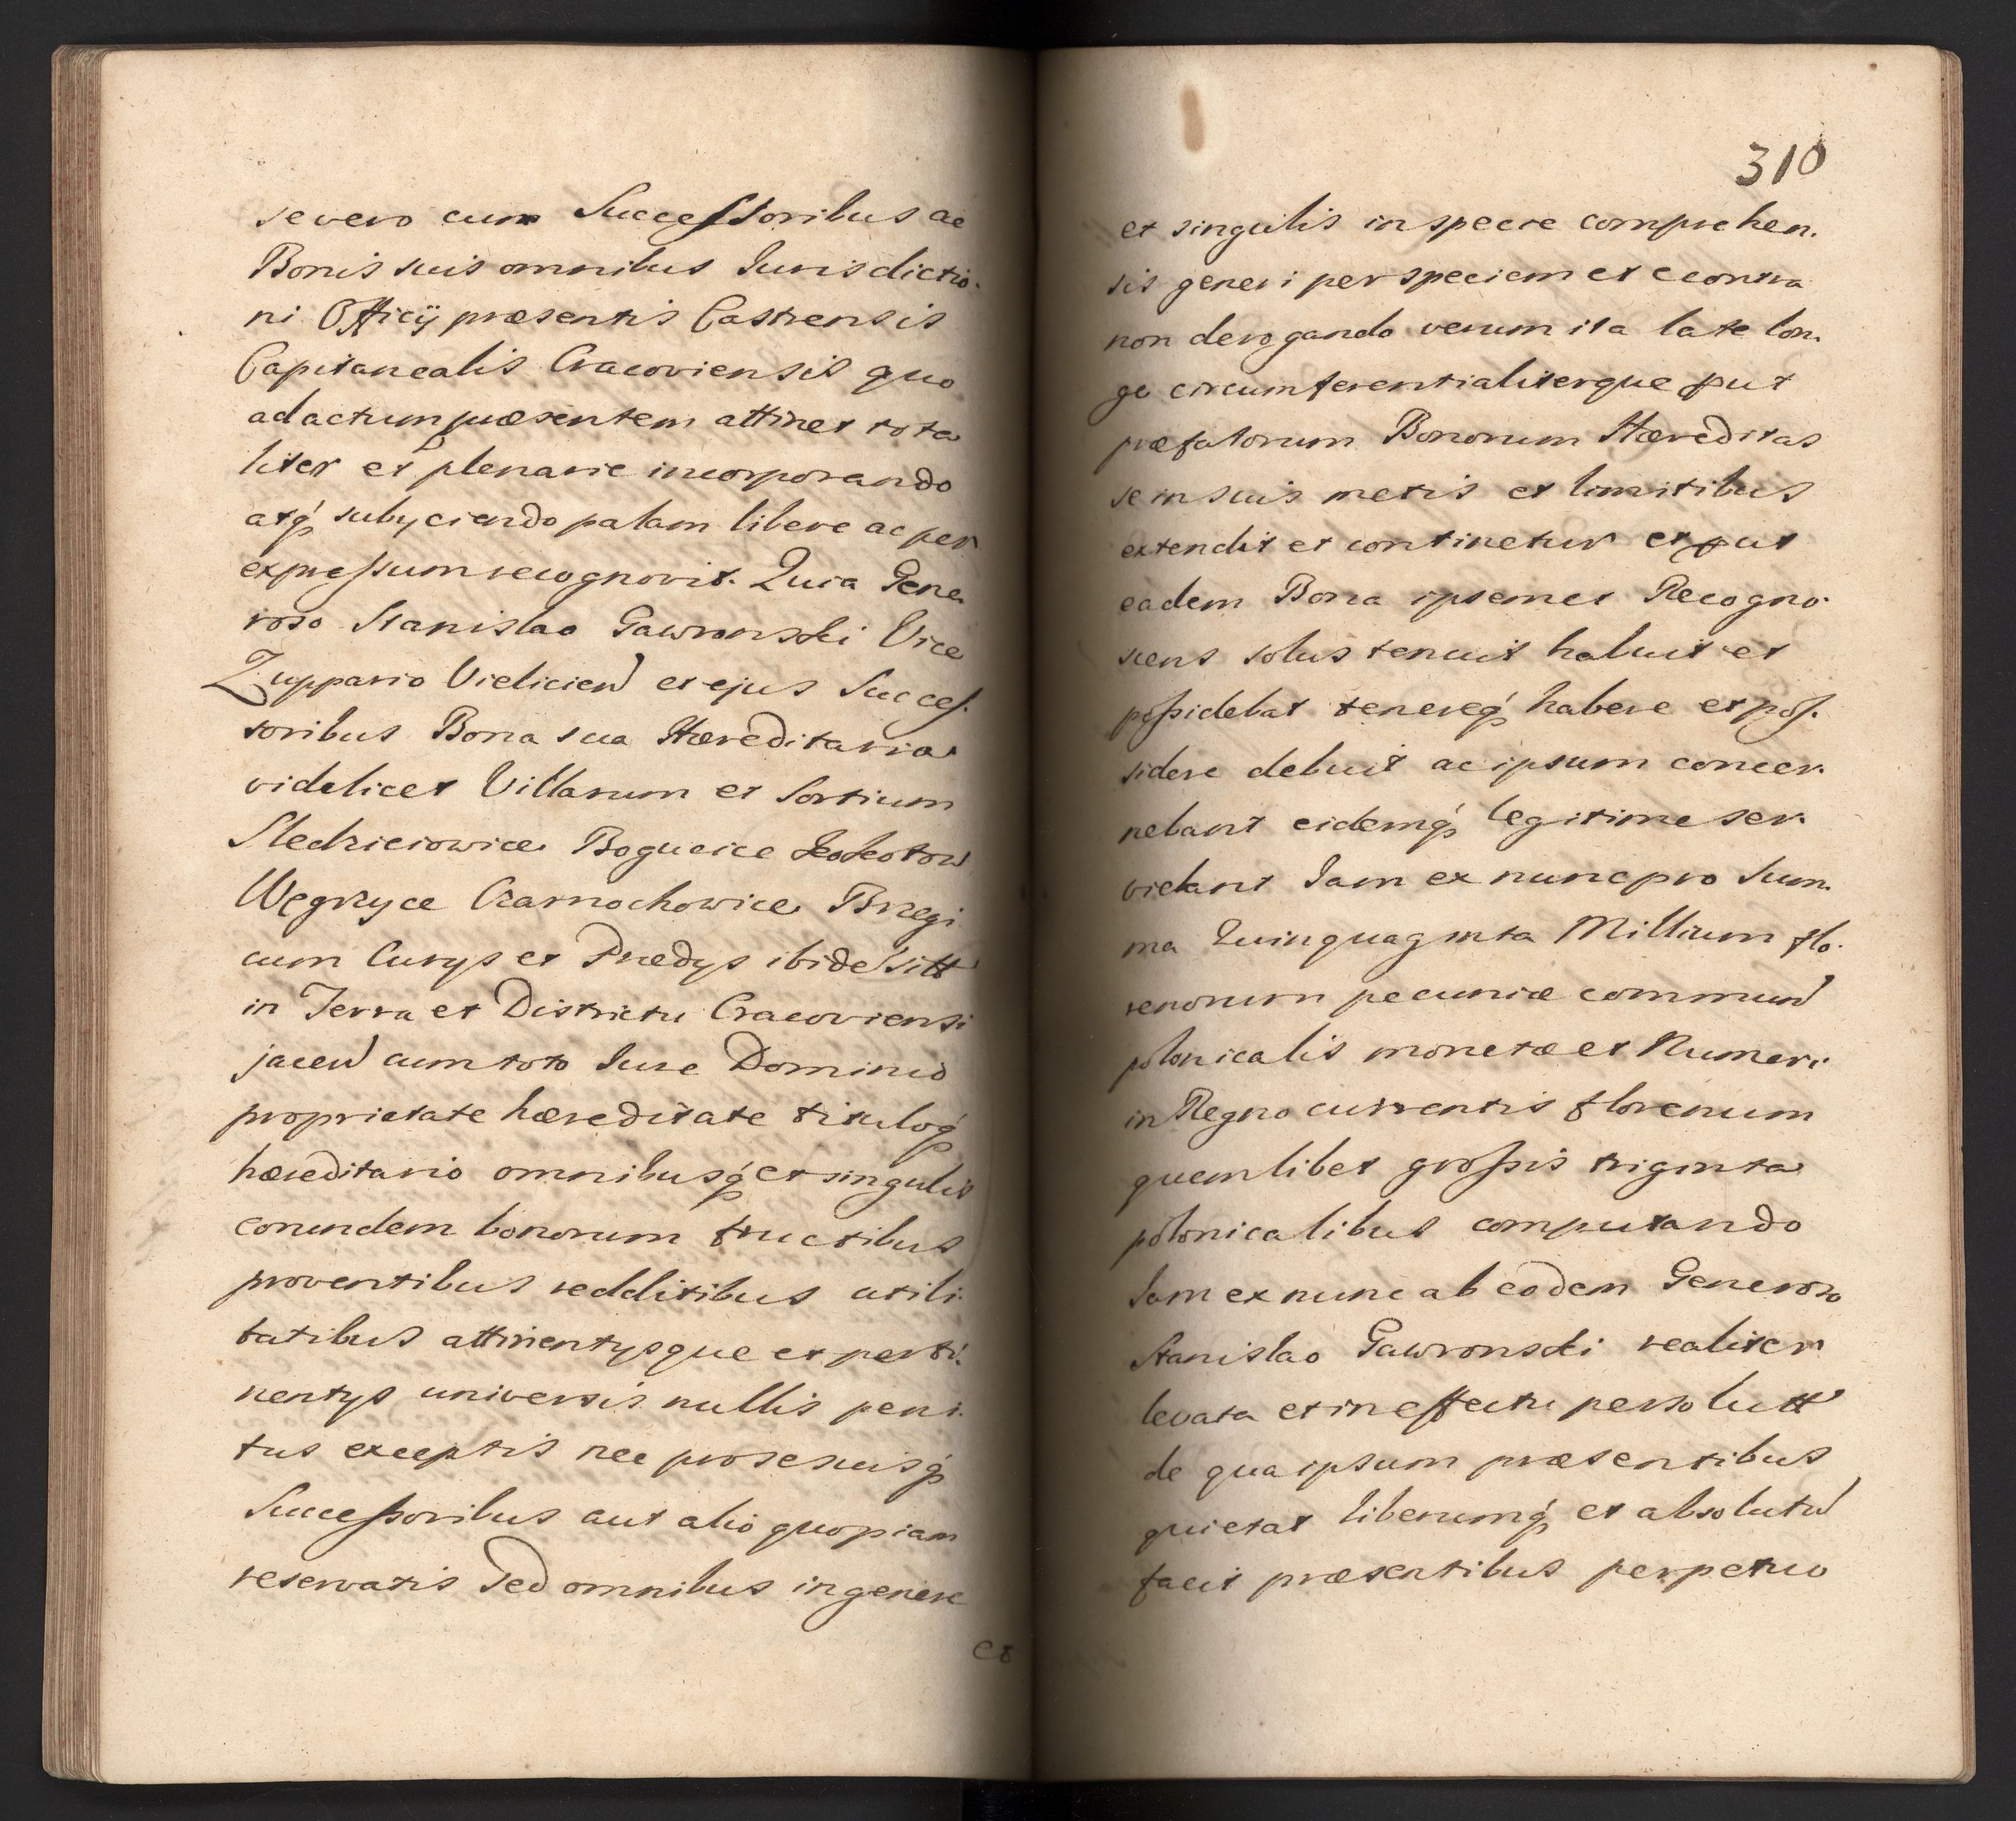 se vero cum Successoribus ac
Bonis suis omnibus Iurisdictio-
ni Officij præsentis Castrensis
Capitanealis Cracoviensis quo
ad actum præsentem attinet tota
liter et plenarie incorporando
atq́ subyciendo palam libere ac per
expressum recognovit. Quia Gene-
roso Stanislao Gawronski Vice
Zuppario Vielicien et ejus Succes-
soribus Bona sua Hæreditaria
videlicet Villarum et Sortium
Sledzieiowice Bogucice Kokotow
Węgrzyce Czarnochowice Brzegi
cum Curys et Prædys ibidē sitt
in Terra et Districtu Cracoviensi
jacen cum toto Iure Dominio
proprietate hæreditate tituloq́
hæreditario omnibusq́ et singulis
eorundem bonorum fructibus
proventibus redditibus utili-
tatibus attinentysque et perti-
nentys universis nullis peni-
tus exceptis nec pro se suisq́
Successoribus aut alio quopiam
reservatis Sed omnibus in genere
et
310
et singulis in specie comprehen-
sis generi per speciem et econtra
non derogando verum ita late lon-
ge circumferentialiterque put
præfatorum Bonorum Hæreditas
se in suis metis et limitibus
extendit et continetur et put
eadem Bona ipsemet Recogno-
scens solus tenuit habuit et
possidebat tenereq́ habere et pos-
sidere debuit ac ipsum concer-
nebant eidemq́ legitime ser-
viebant Iam ex nunc pro Sum-
ma Quinquaginta Millium flo-
renorum pecuniæ commun
polonicalis monetæ et Numeri
in Regno currentis florenum
quemlibet grossis triginta
polonicalibus computando
Iam ex nunc ab eodem Generoso
Stanislao Gawronski realiter
levata et in effectu persolutt
de qua ipsum præsentibus
quietat liberumq́ et absolutū
facit præsentibus perpetuo